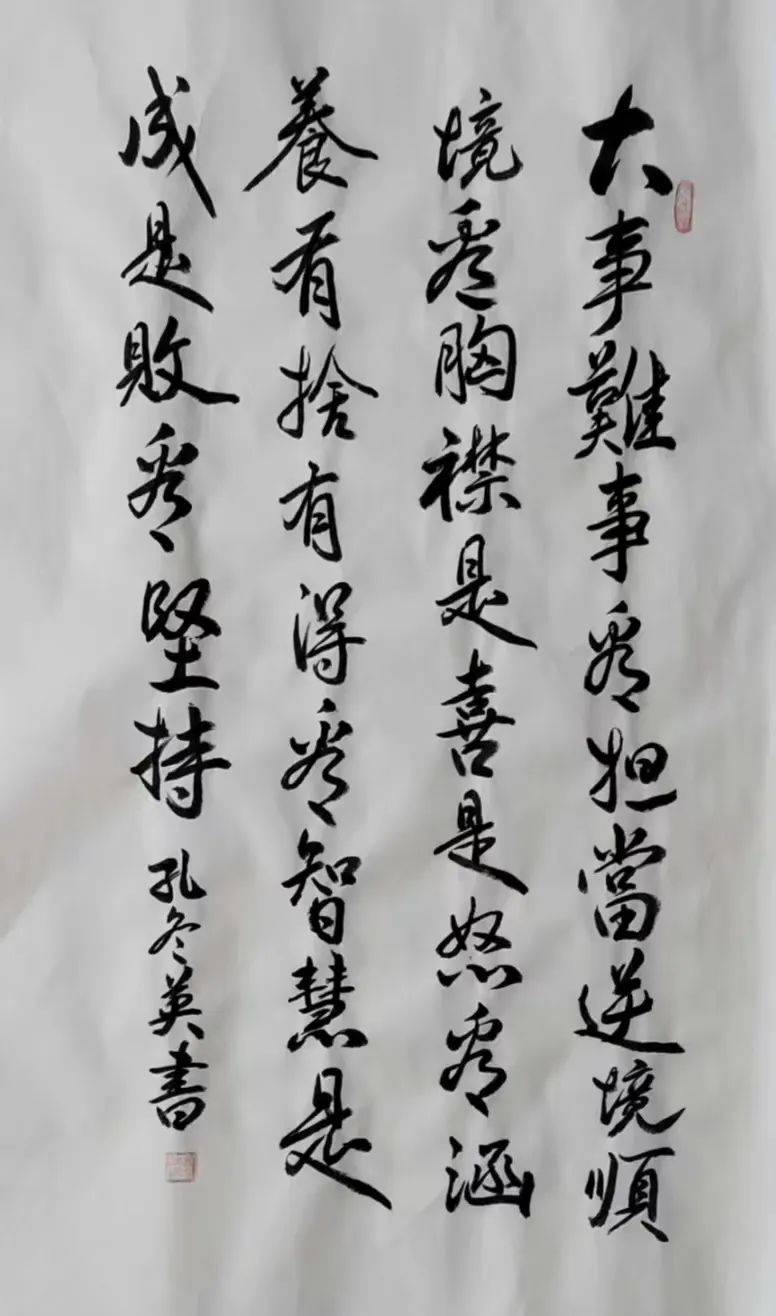 大事難事看担當逆境順
境看胸襟是喜是怒看涵
養有捨有得看智慧是
成是敗看堅持
孔冬英書